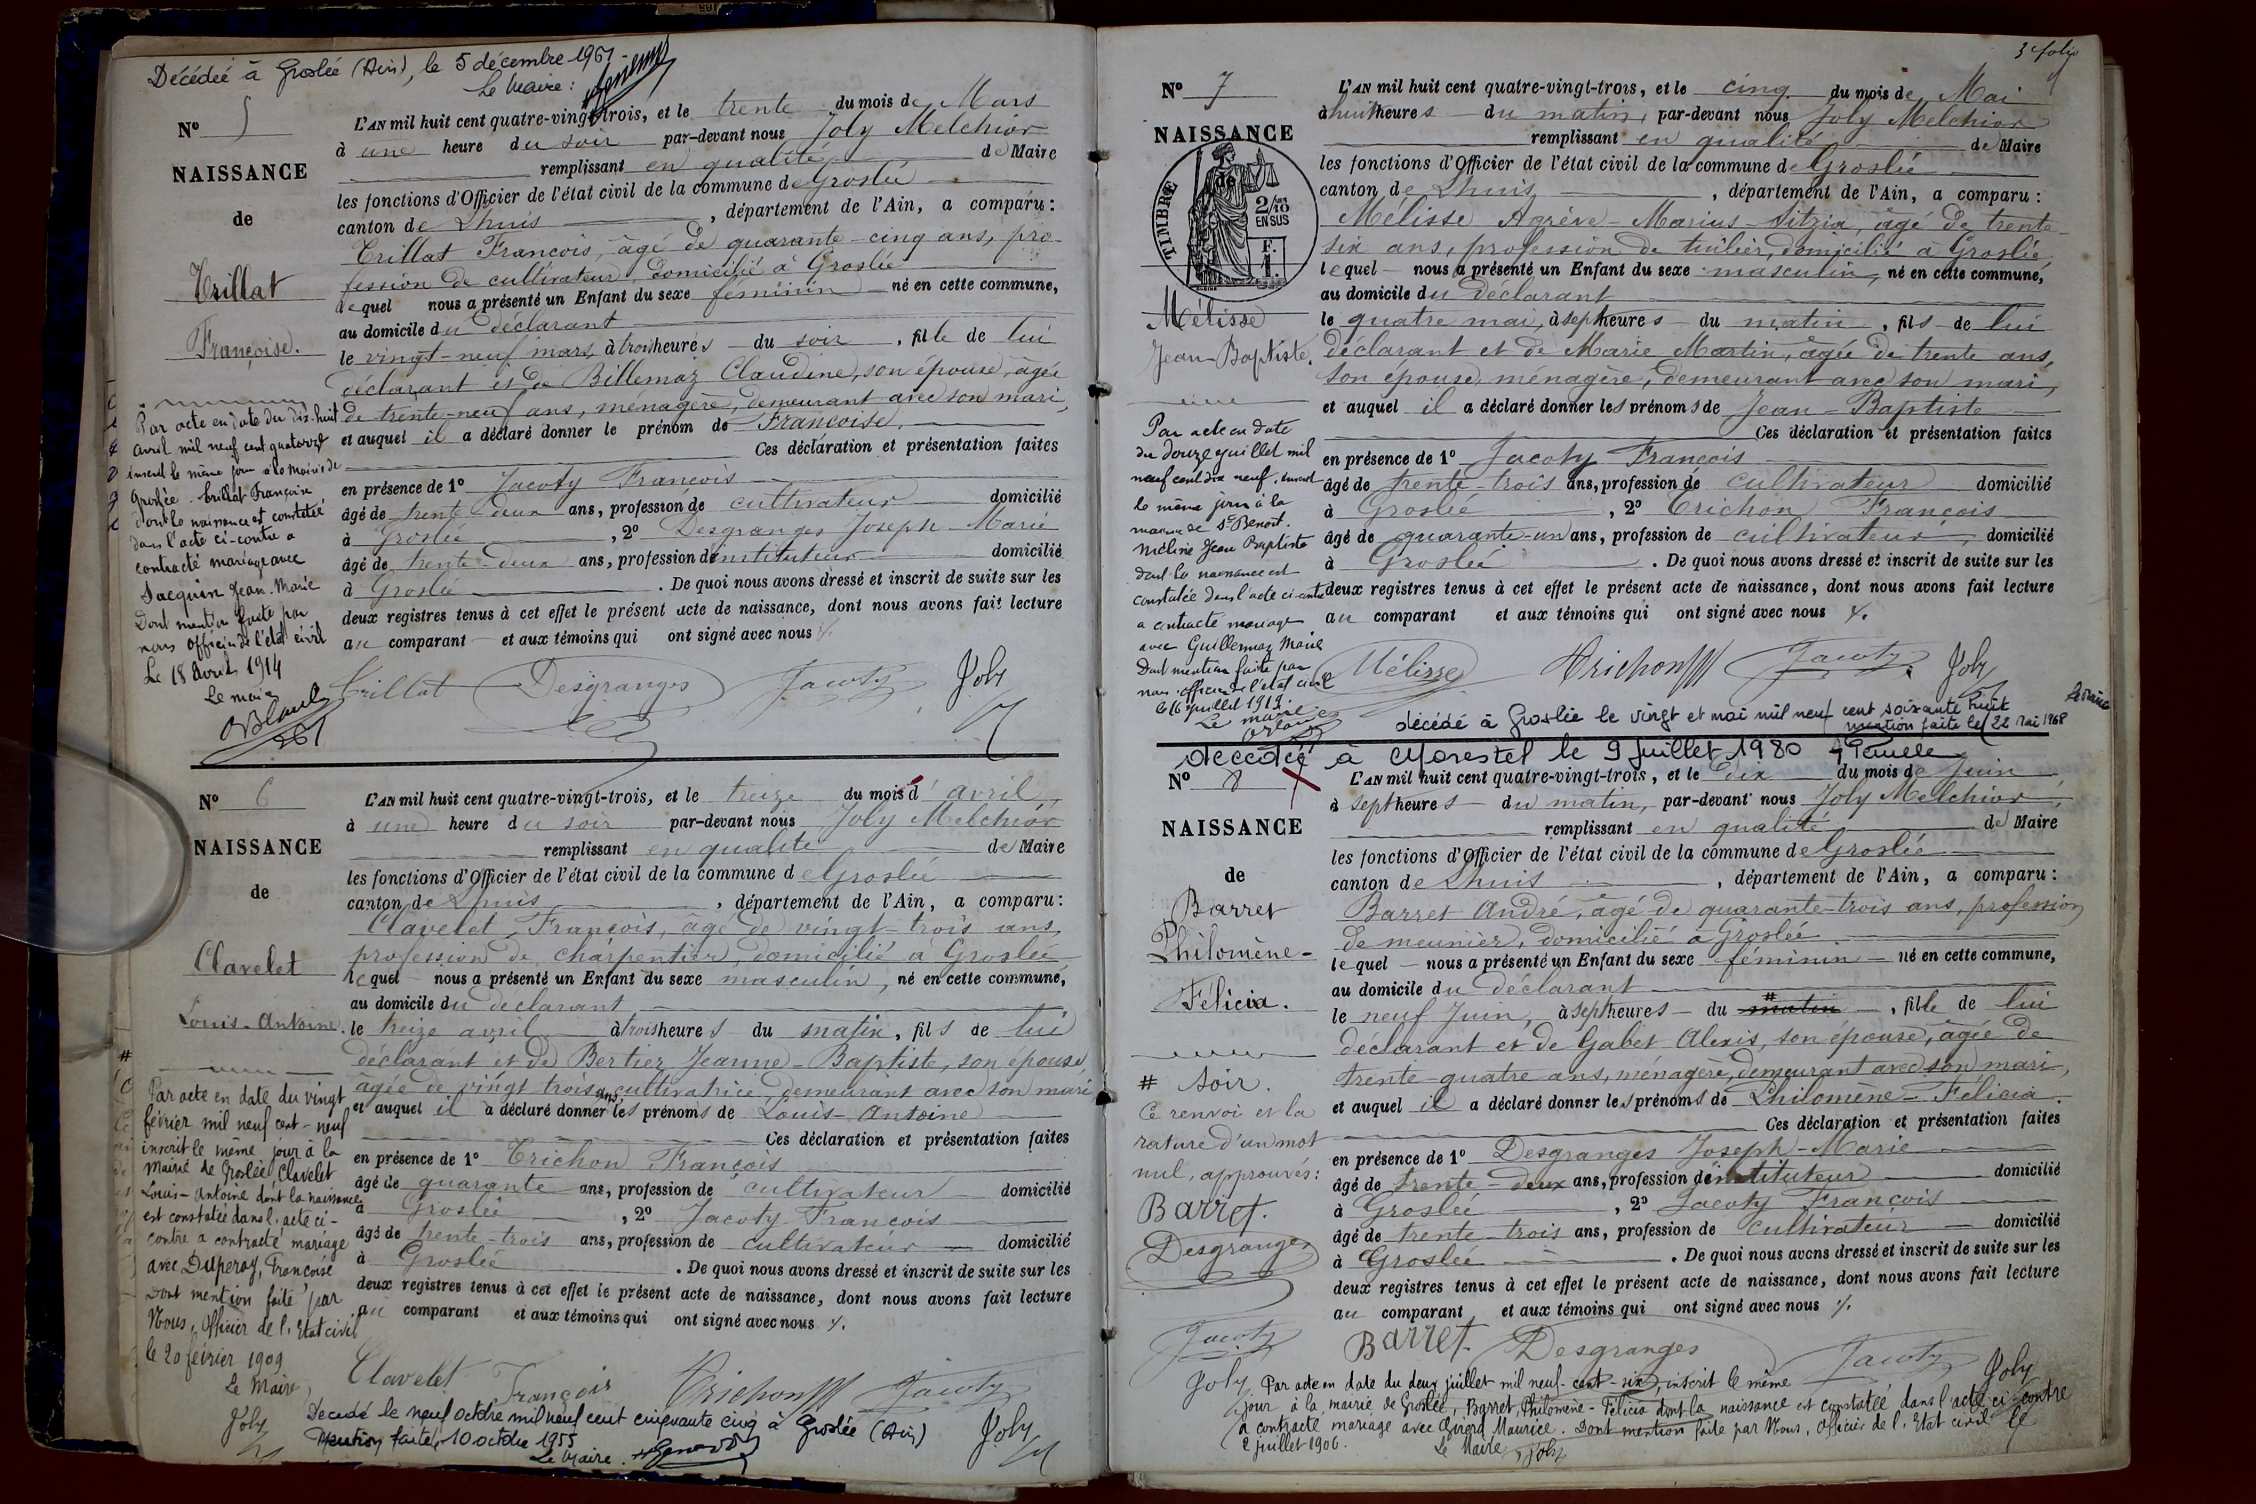 Décédée à Groslée (Ain), le 5 décembre 1961
Le Maire :
N° 5
NAISSANCE
de
Trillat
Françoise.
Par acte en date du dix-huit
avril mil neuf cent quatorze
inscrit le même jour à la Mairie de
Groslée. Trillat Françoise
dont la naissance est constatée
dans l'acte ci-contre a
contracté mariage avec
Jacquin Jean-Marie
Dont mention faite par
nous officier de l'état civil
Le 18 avril 1914
Le maire
L'AN mil huit cent quatre-vingt-trois, et le trente du mois de Mars
à une heure du soir par-devant nous Joly Melchior
remplissant en qualité de Maire
les fonctions d'Officier de l'état civil de la commune de Groslée
canton de Lhuis, département de l'Ain, a comparu :
Trillat François, âgé de quarante-cinq ans, pro-
fession de cultivateur, domicilié à Groslée
lequel nous a présenté un Enfant du sexe féminin né en cette commune,
au domicile du déclarant
le vingt-neuf mars, à trois heures du soir, fille de lui
déclarant et de Billemaz Claudine, son épouse, âgée
de trente-neuf ans, ménagère, demeurant avec son mari,
et auquel il a déclaré donner le prénom de Françoise.
Ces déclaration et présentation faites
en présence de 1° Jacoty François
âgé de trente-deux ans, profession de cultivateur domicilié
à Groslée, 2° Desgranges Joseph-Marie
âgé de trente-deux ans, profession d'instituteur domicilié
à Groslée. De quoi nous avons dressé et inscrit de suite sur les
deux registres tenus à cet effet le présent acte de naissance, dont nous avons fait lecture
au comparant et aux témoins qui ont signé avec nous
Trillat Desgranges Jacoty Joly
N° 6
NAISSANCE
de
Clavelet
Louis-Antoine.
Par acte en date du vingt
février mil neuf cent-neuf
inscrit le même jour à la
Mairie de Groslée Clavelet
Louis-Antoine dont la naissance
est constatée dans l'acte ci-
contre a contracté mariage
avec Duperay, Françoise
Dont mention faite par
Nous, Officier de l'Etat civil
le 20 février 1909
Le Maire,
Joly
L'AN mil huit cent quatre-vingt-trois, et le treize du mois d'avril
à une heure du soir par-devant nous Joly Melchior
remplissant en qualité de Maire
les fonctions d'Officier de l'état civil de la commune de Groslée
canton de Lhuis, département de l'Ain, a comparu :
Clavelet François, âgé de vingt-trois ans,
profession de charpentier, domicilié à Groslée
lequel nous a présenté un Enfant du sexe masculin, né en cette commune,
au domicile du déclarant
le treize avril à trois heures du matin, fils de lui
déclarant et de Bertier Jeanne-Baptiste, son épouse,
âgée de vingt trois ans, cultivatrice, demeurant avec son mari
et auquel il a déclaré donner les prénoms de Louis-Antoine
Ces déclaration et présentation faites
en présence de 1° Trichon François
âgé de quarante ans, profession de cultivateur domicilié
à Groslée, 2° Jacoty François
âgé de trente-trois ans, profession de cultivateur domicilié
à Groslée. De quoi nous avons dressé et inscrit de suite sur les
deux registres tenus à cet effet le présent acte de naissance, dont nous avons fait lecture
au comparant et aux témoins qui ont signé avec nous
Clavelet François Trichon Jacoty
Décédé le neuf octobre mil neuf cent cinquante cinq à Groslée (Ain)
Mention faite, 10 octobre 1955
Le Maire.
Joly
3e folio
N° 7
NAISSANCE
de
TIMBRE
2/10
EN SUS
F.
1.
Mélisse
Jean-Baptiste.
Par acte en date
du douze juillet mil
neuf cent dix neuf, inscrit
le même jour à la
mairie de St Benoit.
Mélisse Jean Baptiste
dont la naissance est
constatée dans l'acte ci-contre
a contracté mariage
avec Guillermaz Marie
Dont mention faite par
nous officier de l'état civil
le 16 juillet 1919.
Le maire
L'AN mil huit cent quatre-vingt-trois, et le cinq du mois de Mai
à huit heures du matin, par-devant nous Joly Melchior
remplissant en qualité de Maire
les fonctions d'Officier de l'état civil de la commune de Groslée
canton de Lhuis, département de l'Ain, a comparu :
Mélisse Agrève-Marius-Sitzia, âgé de trente-
six ans, profession de tuilier, domicilié à Groslée
lequel nous a présenté un Enfant du sexe masculin, né en cette commune,
au domicile du déclarant
le quatre mai, à sept heures du matin, fils de lui
déclarant et de Marie Martin, âgée de trente ans,
son épouse, ménagère, demeurant avec son mari,
et auquel il a déclaré donner les prénoms de Jean-Baptiste
Ces déclaration et présentation faites
en présence de 1° Jacoty François
âgé de trente-trois ans, profession de cultivateur domicilié
à Groslée, 2° Trichon François
âgé de quarante-un ans, profession de cultivateur, domicilié
à Groslée. De quoi nous avons dressé et inscrit de suite sur les
deux registres tenus à cet effet le présent acte de naissance, dont nous avons fait lecture
au comparant et aux témoins qui ont signé avec nous
Mélisse Trichon Jacoty Joly
décédé à Groslée le vingt et mai mil neuf cent soixante huit
mention faite le 22 mai 1968
Le maire
décédée à Morestel le 9 Juillet 1980
N° 8
NAISSANCE
de
Barret
Philomène-
Félicia.
# soir.
Ce renvoi et la
rature d'un mot
nul, approuvés :
Barret.
Desgranges
Jacoty
Joly
L'AN mil huit cent quatre-vingt-trois, et le dix du mois de Juin
à sept heures du matin, par-devant nous Joly Melchior
remplissant en qualité de Maire
les fonctions d'Officier de l'état civil de la commune de Groslée
canton de Lhuis, département de l'Ain, a comparu :
Barret André, âgé de quarante-trois ans, profession
de meunier, domicilié à Groslée
lequel nous a présenté un Enfant du sexe féminin né en cette commune,
au domicile du déclarant
le neuf Juin, à sept heures du matin #, fille de lui
déclarant et de Gabet Alexis, son épouse, âgée de
trente-quatre ans, ménagère, demeurant avec son mari,
et auquel il a déclaré donner les prénoms de Philomène-Félicia.
Ces déclaration et présentation faites
en présence de 1° Desgranges Joseph-Marie
âgé de trente-deux ans, profession d'instituteur domicilié
à Groslée, 2° Jacoty François
âgé de trente-trois ans, profession de cultivateur domicilié
à Groslée. De quoi nous avons dressé et inscrit de suite sur les
deux registres tenus à cet effet le présent acte de naissance, dont nous avons fait lecture
au comparant et aux témoins qui ont signé avec nous
Barret. Desgranges Jacoty Joly
Par acte en date du deux juillet mil neuf-cent-six, inscrit le même
jour à la mairie de Groslée, Barret, Philomène-Félicia dont la naissance est constatée dans l'acte ci-contre
a contracté mariage avec Girard Maurice. Dont mention faite par Nous, Officier de l'Etat civil le
2 juillet 1906.
Le Maire, Joly